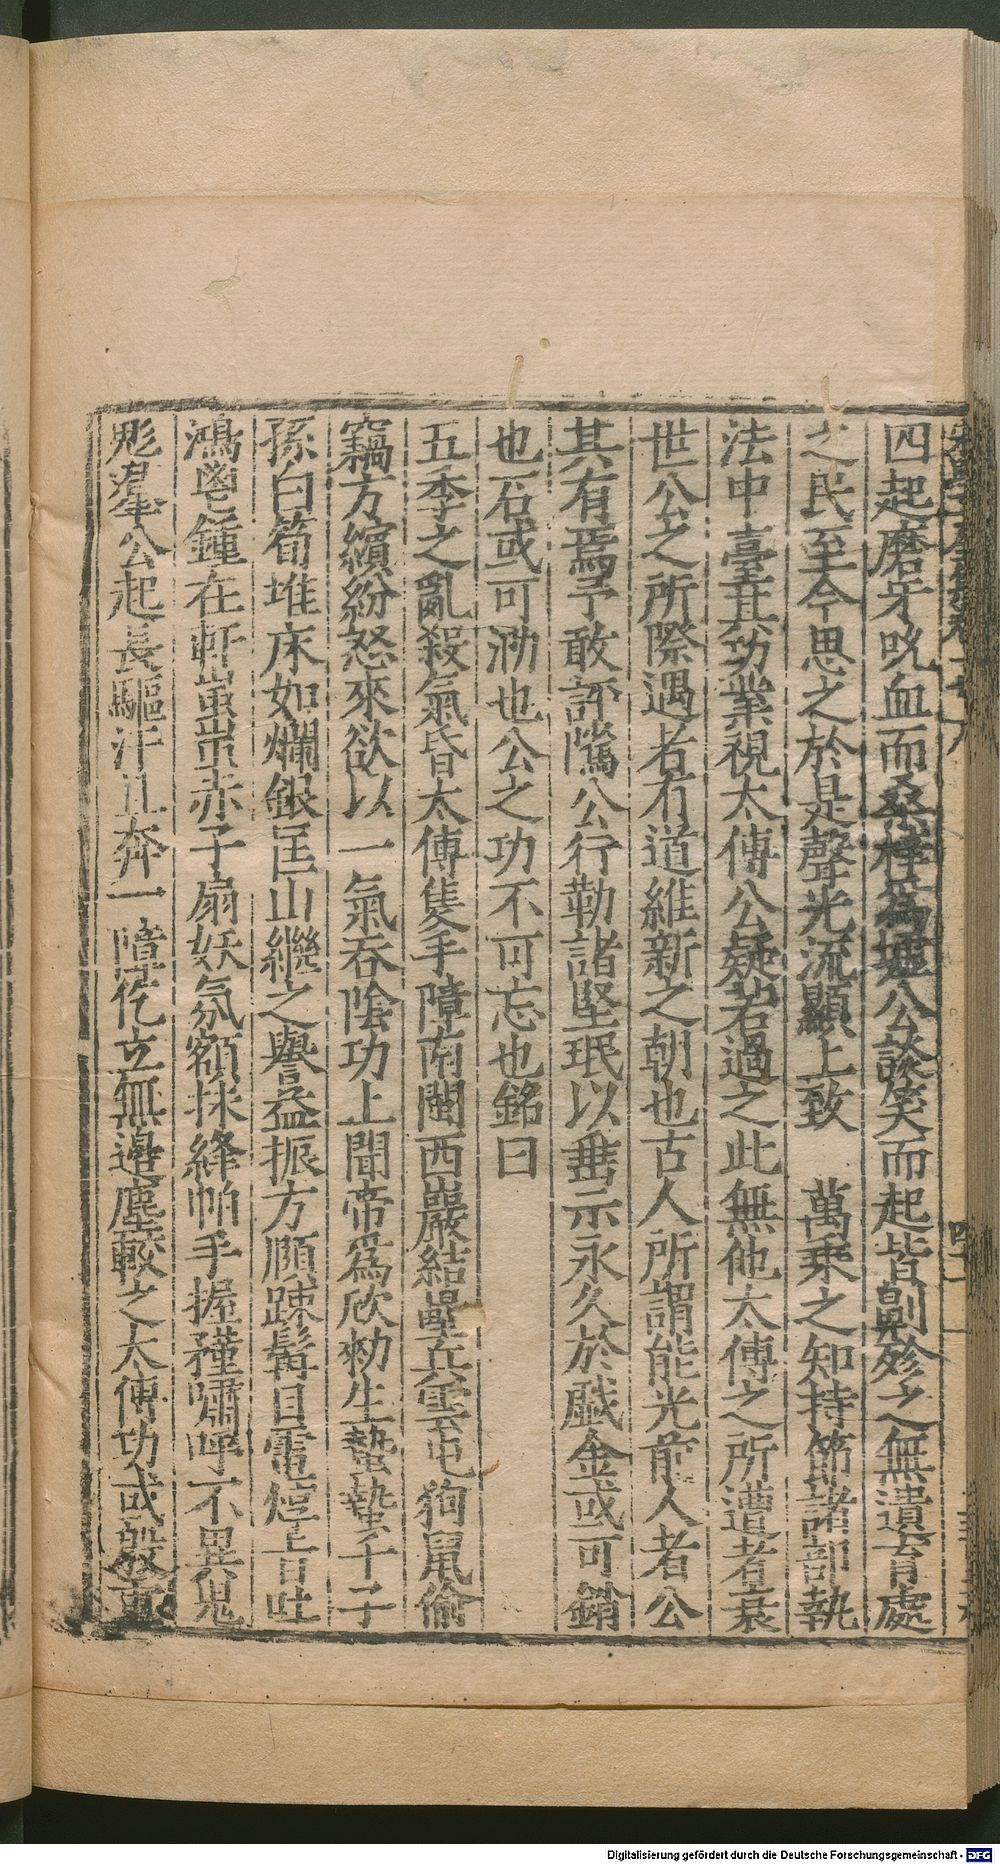 四起磨牙吮血而桑梓為墟公談笑而起皆劓殄之無遺育處
之民至今思之於是聲光流顯上致　萬乘之知持節諸部執
法中臺其功業視太傅公疑若過之此無他太傅之所遭者衰
世公之所際遇者有道維新之朝也古人所謂能光前人者公
其有焉予敢評隲公行勒諸堅珉以垂示永久於戲金或可銷
也石或可泐也公之功不可忘也銘曰
五季之亂殺氣昏太傅隻手障南閩西巖結壘兵雲屯狗鼠偷
竊方繽紛怒來欲以一氣吞陰功上聞帝為欣勑生蟄蟄千子
孫白筍堆床如爛銀匡山繼之譽益振方頤疎髯目電焞上百吐
鴻鬯鍾在軒蚩蚩赤子扇妖氛額抹絳帕手握矜嘯呼不異鬼
彪羣公起長驅汗且奔一障仡立無邊塵較之太傅功或殷東
Digitalisierung gefördert durch die Deutsche Forschungsgemeinschaft - DFG